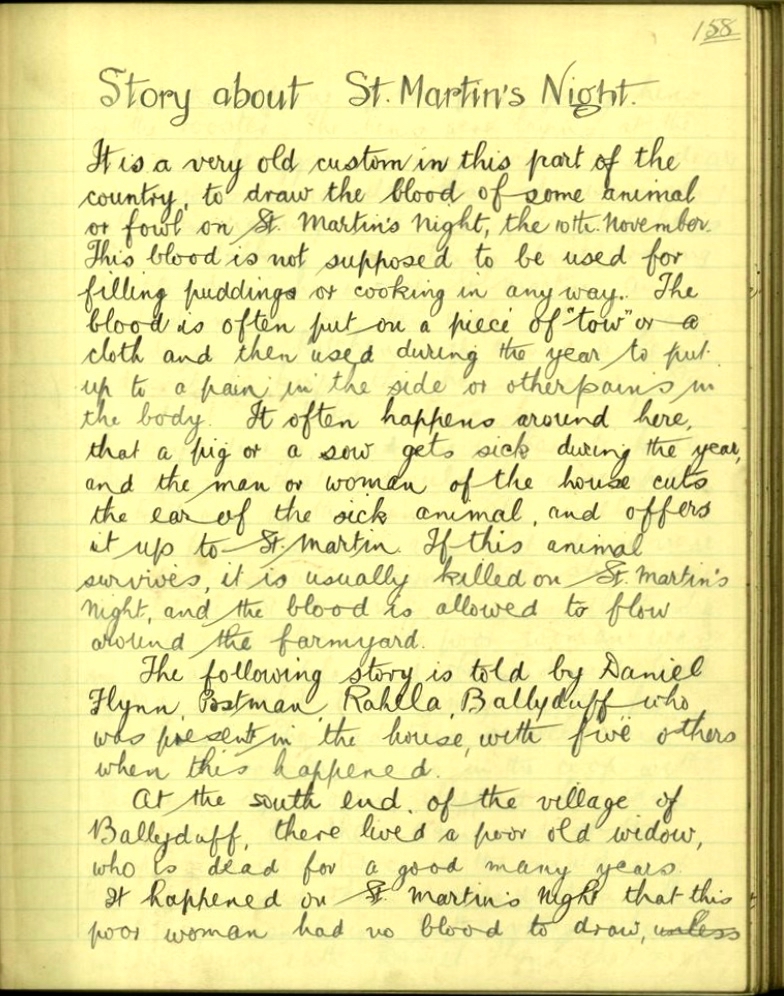 158
Story about St. Martin's Night.
It is a very old custom in this part of the
country, to draw the blood of some animal
or fowl on St. Martin's Night, the 10th. November.
This blood is not supposed to be used for
filling puddings or cooking in any way. The
blood is often put on a piece of "tow" or a
cloth and then used during the year to put
up to a pain in the side or other pains in
the body. It often happens around here,
that a pig or a sow gets sick during the year,
and the man or woman of the house cuts
the ear of the sick animal, and offers
it up to St. Martin. If this animal
survives, it is usually killed on St. Martin's
Night, and the blood is allowed to flow
around the farmyard.
The following story is told by Daniel
Flynn, Postman, Rahela, Ballyduff who
was present in the house, with five others
when this happened.
At the south end. of the village of
Ballyduff, there lived a poor old widow,
who is dead for a good many years.
It happened on St. Martin's Night that this
poor woman had no blood to draw, unless